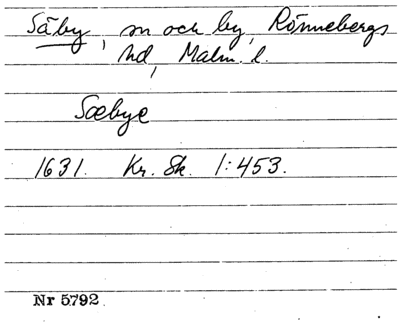 Säby, sn och by, Rönnebergs
hd, Malm. l.
Sæbye
1631. Kr. Sk. 1:453.
Nr 5792